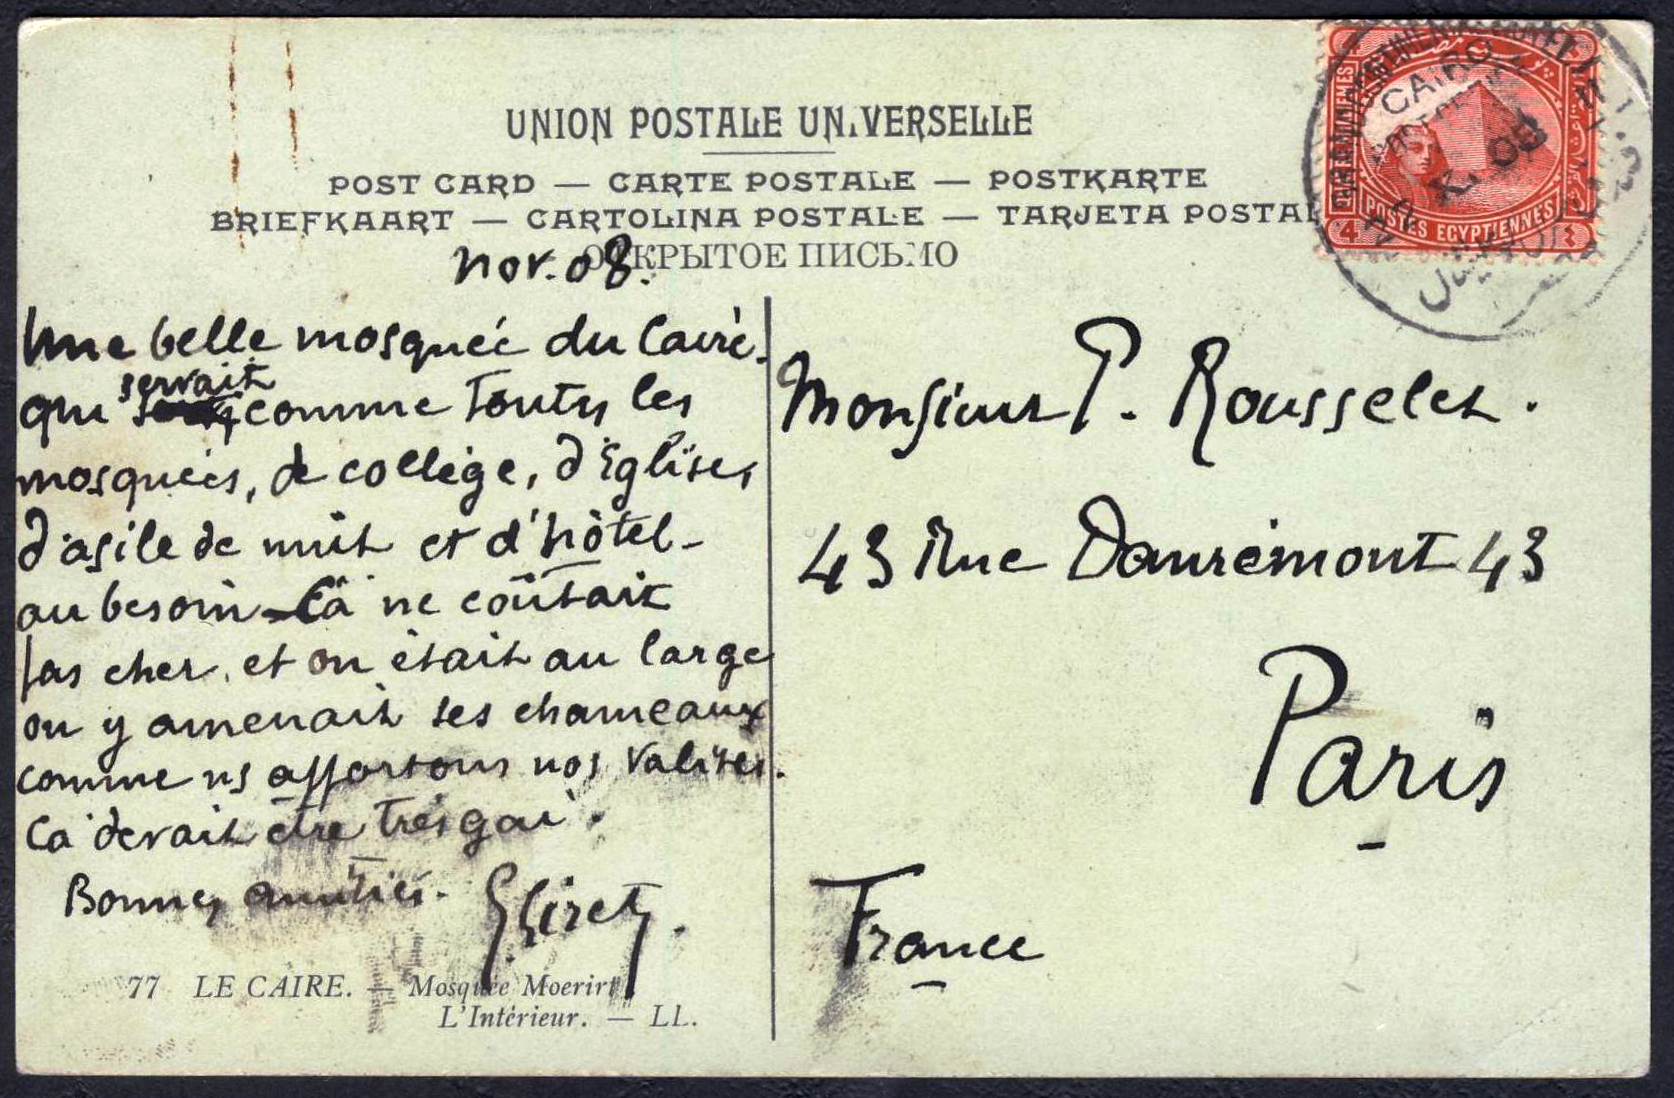 UNION POSTALE UNIVERSELLE
POST CARD — CARTE POSTALE — POSTKARTE
BRIEFKAART — CARTOLINA POSTALE — TARJETA POSTAL
ОТКРЫТОЕ ПИСЬМО
nov. 08.
Une belle mosquée du Caire.
qui servait comme toutes les
mosquées, de collège, d'Eglises,
d'asile de nuit et d'hôtel -
au besoin - Ca ne coûtait
pas cher, et on était au large
on y amenait ses chameaux
comme ns apportons nos valises.
Ca devait être très gai.
Bonnes amitiés.
77 LE CAIRE. — Mosquée
L'Intérieur. — LL.
Monsieur P. Rousselet.
43 Rue Damrémont 43
Paris
France
CAIRO
POSTES EGYPTIENNES
4 ٤